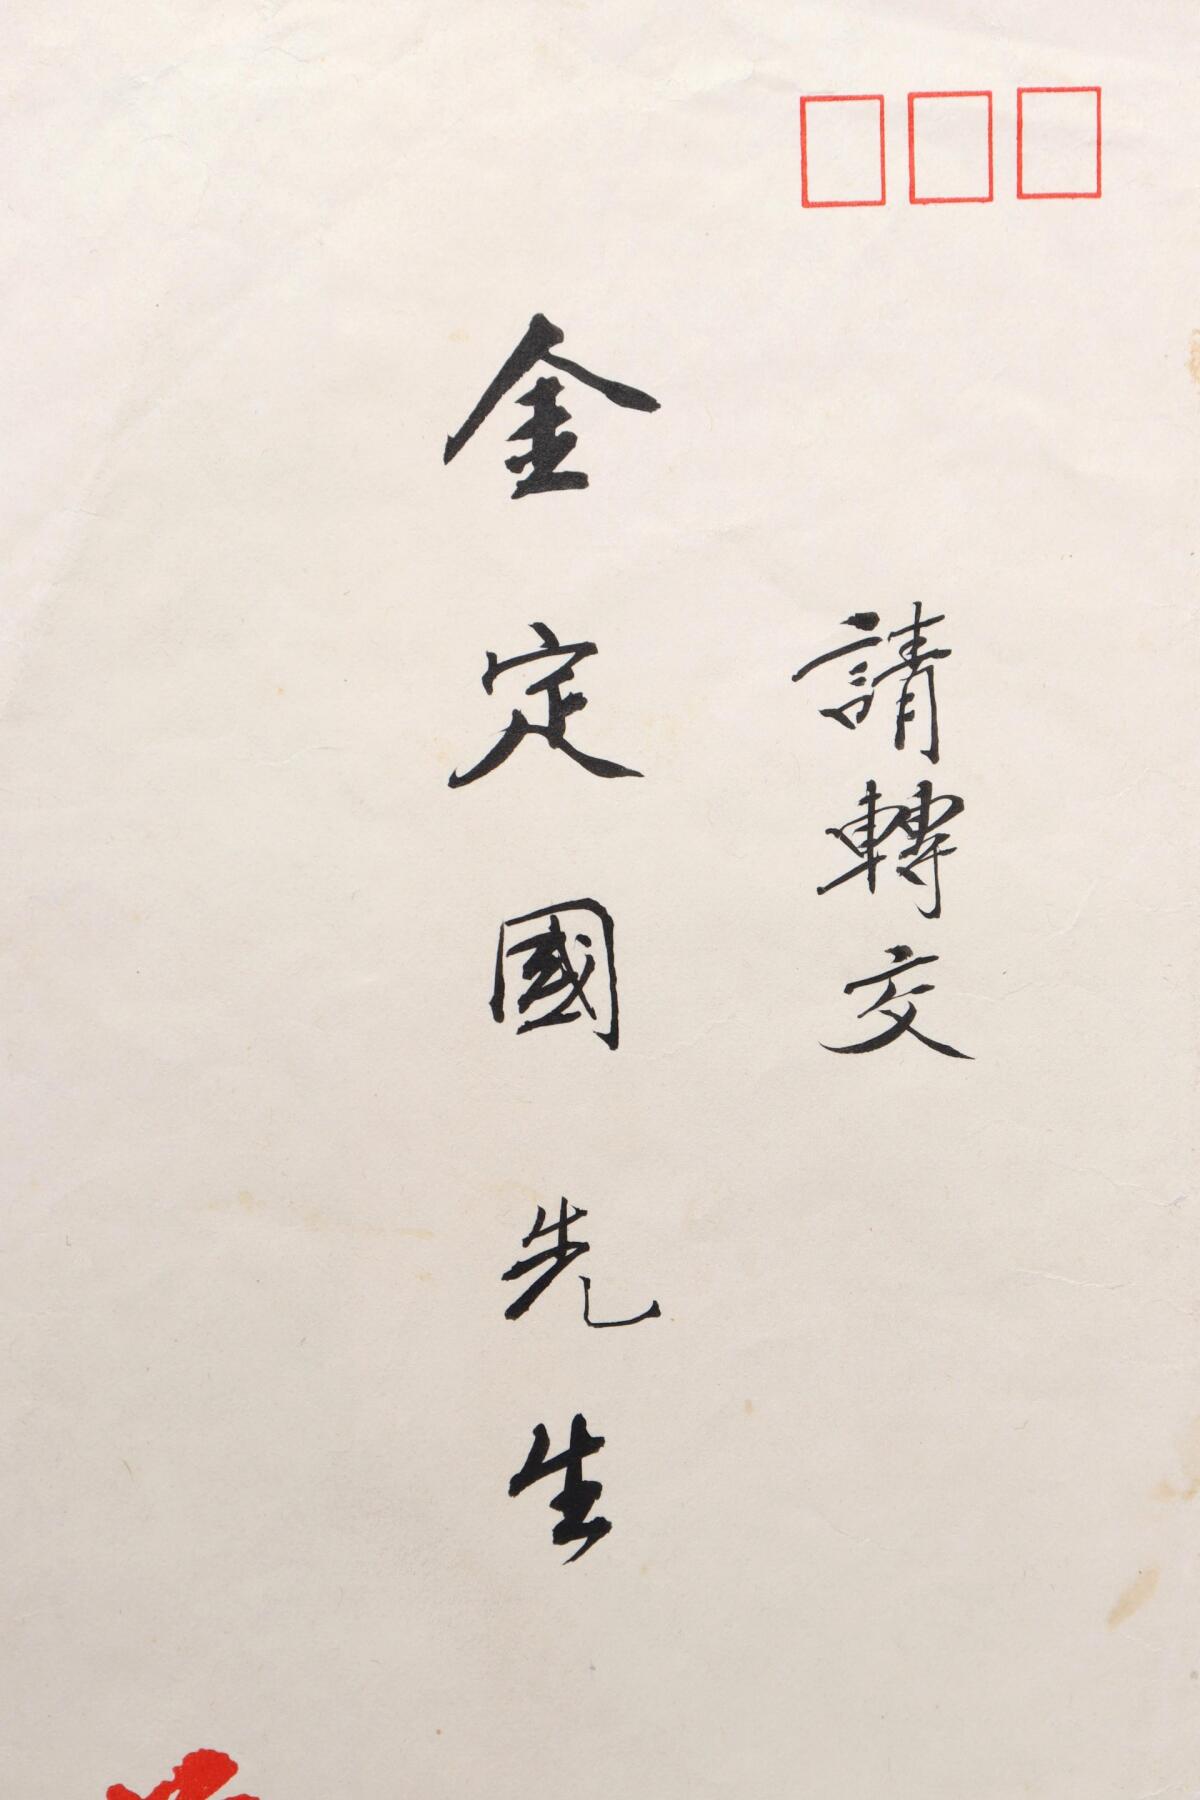 請轉交
金定國先生